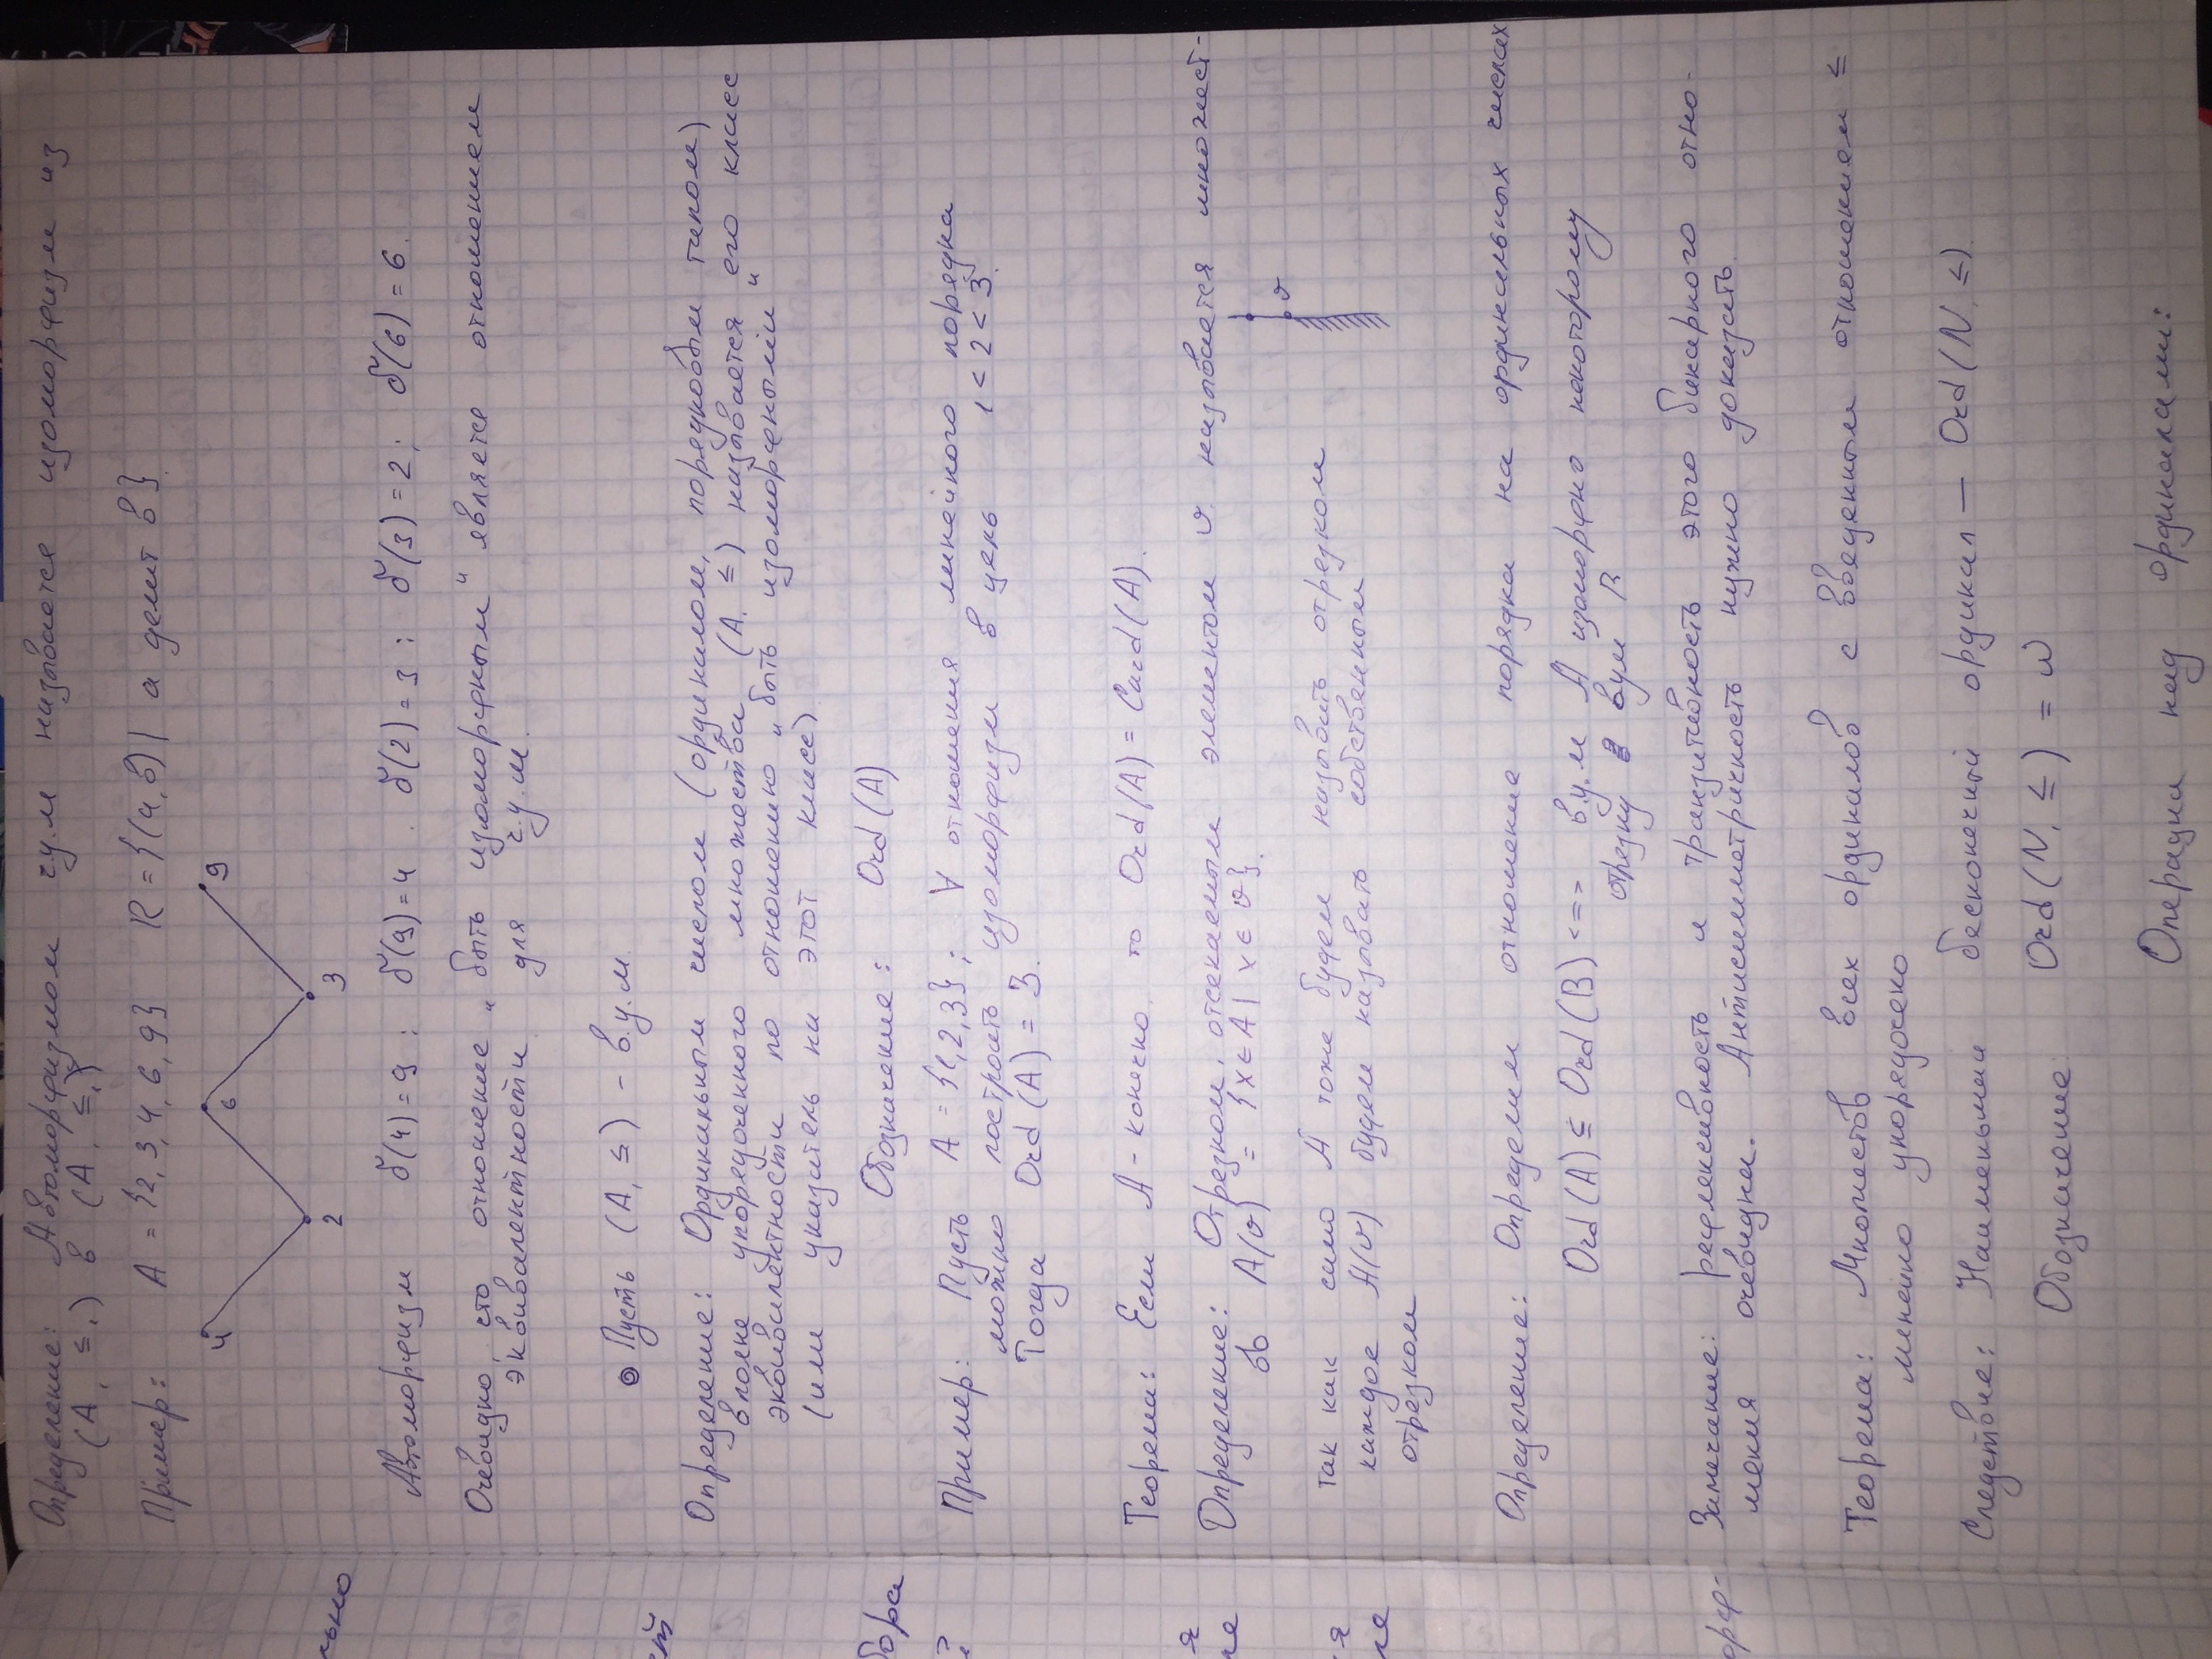 Определение: Автоморфизмом ч.у.м называется изоморфизм из
(A, ≤,) в (A, ≤,)
Пример: A = {2, 3, 4, 6, 9} R = {(a, b) | a делит b}.
4 6 9
2 3
Автоморфизм σ(4) = 9; σ(9) = 4. σ(2) = 3; σ(3) = 2; σ(6) = 6.
Очевидно, что отношение „быть изоморфным“ является отношением
эквивалентности для ч.у.м.
Пусть (A, ≤) - в.у.м.
Определение: Ординальным числом (ординалом, порядковым типом)
вполне упорядоченного множества (A, ≤) называется его класс
эквивалентности по отношению „быть изоморфными“
(или указатель на этот класс)
Обозначение: Ord(A)
Пример: Пусть A = {1, 2, 3}; ∀ отношения линейного порядка
можно построить изоморфизм в цепь 1 < 2 < 3.
Тогда Ord(A) = 3.
Теорема: Если A - конечно, то Ord(A) = Card(A).
Определение: Отрезком, отсекаемым элементом v называется множест-
во A(v) = {x ∈ A | x ∈ v}.
v
так как само A тоже будем называть отрезком
каждое A(v) будем называть собственным
отрезком
Определение: Определим отношение порядка на ординальных числах
Ord(A) ≤ Ord(B) <=> в.у.м A изоморфно некоторому
отрезку вум B
Замечание: рефлексивность и транзитивность этого бинарного отно-
шения очевидна. Антисимметричность нужно доказать.
Теорема: Множеств всех ординалов с введенным отношением ≤
линейно упорядочено
Следствие: Наименьший бесконечный ординал — Ord(N, ≤).
Обозначение: Ord(N, ≤) = ω
Операции над ординалами:
льно
ст
бора
я
ле
я
ле
орф-